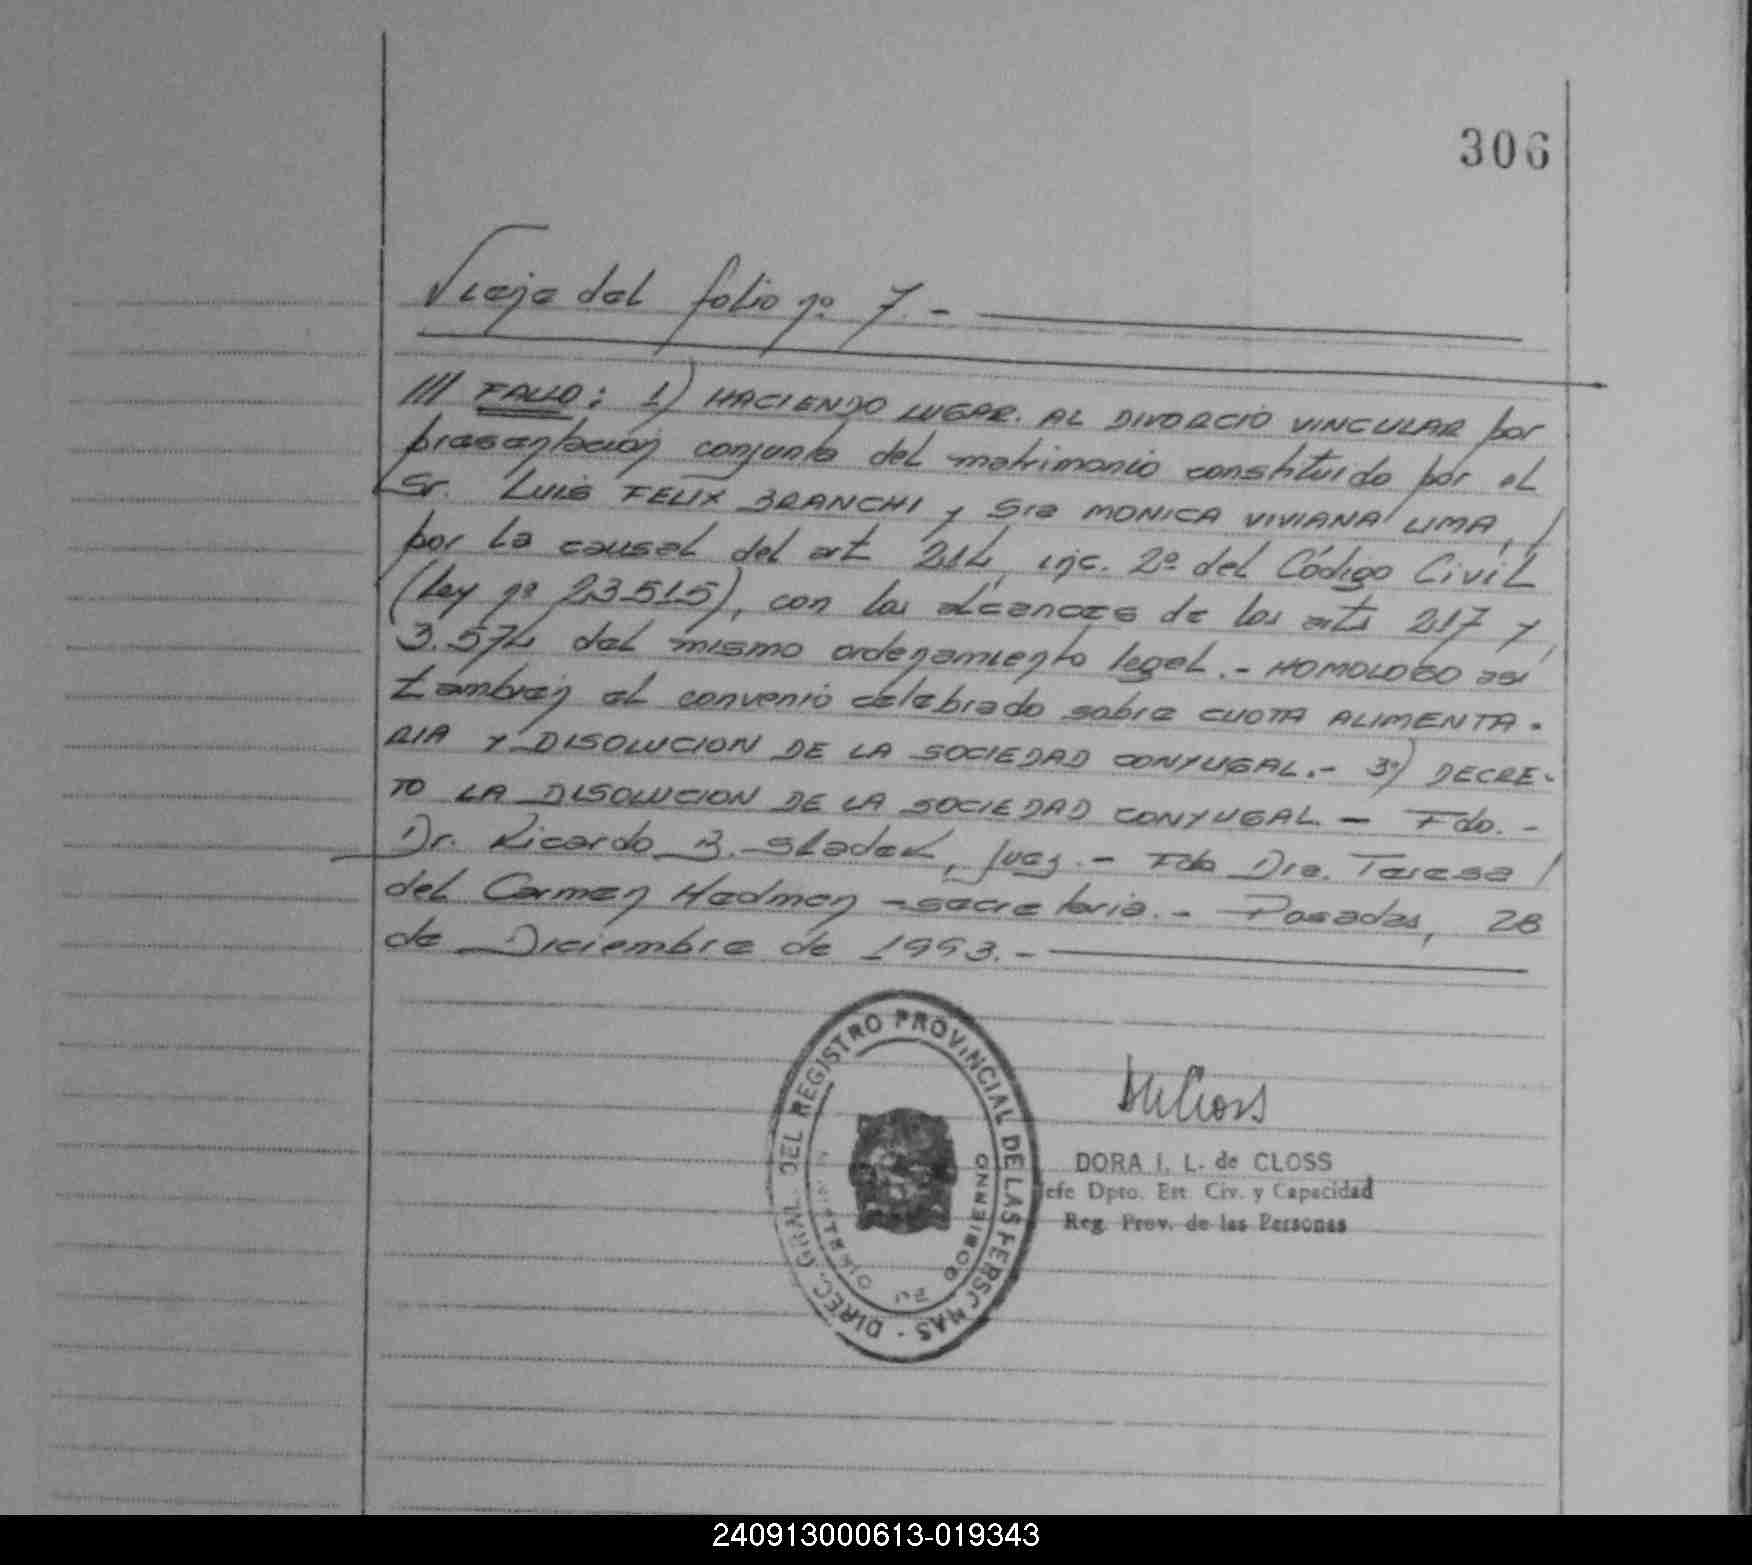 306
Viene del folio nº 7.-
/// FALLO: 1) HACIENDO LUGAR. AL DIVORCIO VINCULAR por
presentación conjunta del matrimonio constituido por el
Sr. LUIS FELIX BRANCHI y Sra MONICA VIVIANA LIMA, /
por la causal del art 214, inc. 2º del Código Civil
(Ley nº 23515), con los alcances de los arts 217 y
3.574 del mismo ordenamiento legal.- HOMOLOGO así
también el convenio celebrado sobre CUOTA ALIMENTA-
RIA Y DISOLUCION DE LA SOCIEDAD CONYUGAL.- 3º) DECRE-
TO LA DISOLUCION DE LA SOCIEDAD CONYUGAL - Fdo.-
Dr. Ricardo B. Sladek, Juez.- Fdo Dra. Teresa /
del Carmen Hedman -secretaria.- Posadas, 28
de Diciembre de 1993.-
DIREC. GRAL. DEL REGISTRO PROVINCIAL DE LAS PERSONAS -
MINISTERIO DE GOBIERNO
DORA I. L. de CLOSS
efe Dpto. Est. Civ. y Capacidad
Reg. Prov. de las Personas
240913000613-019343